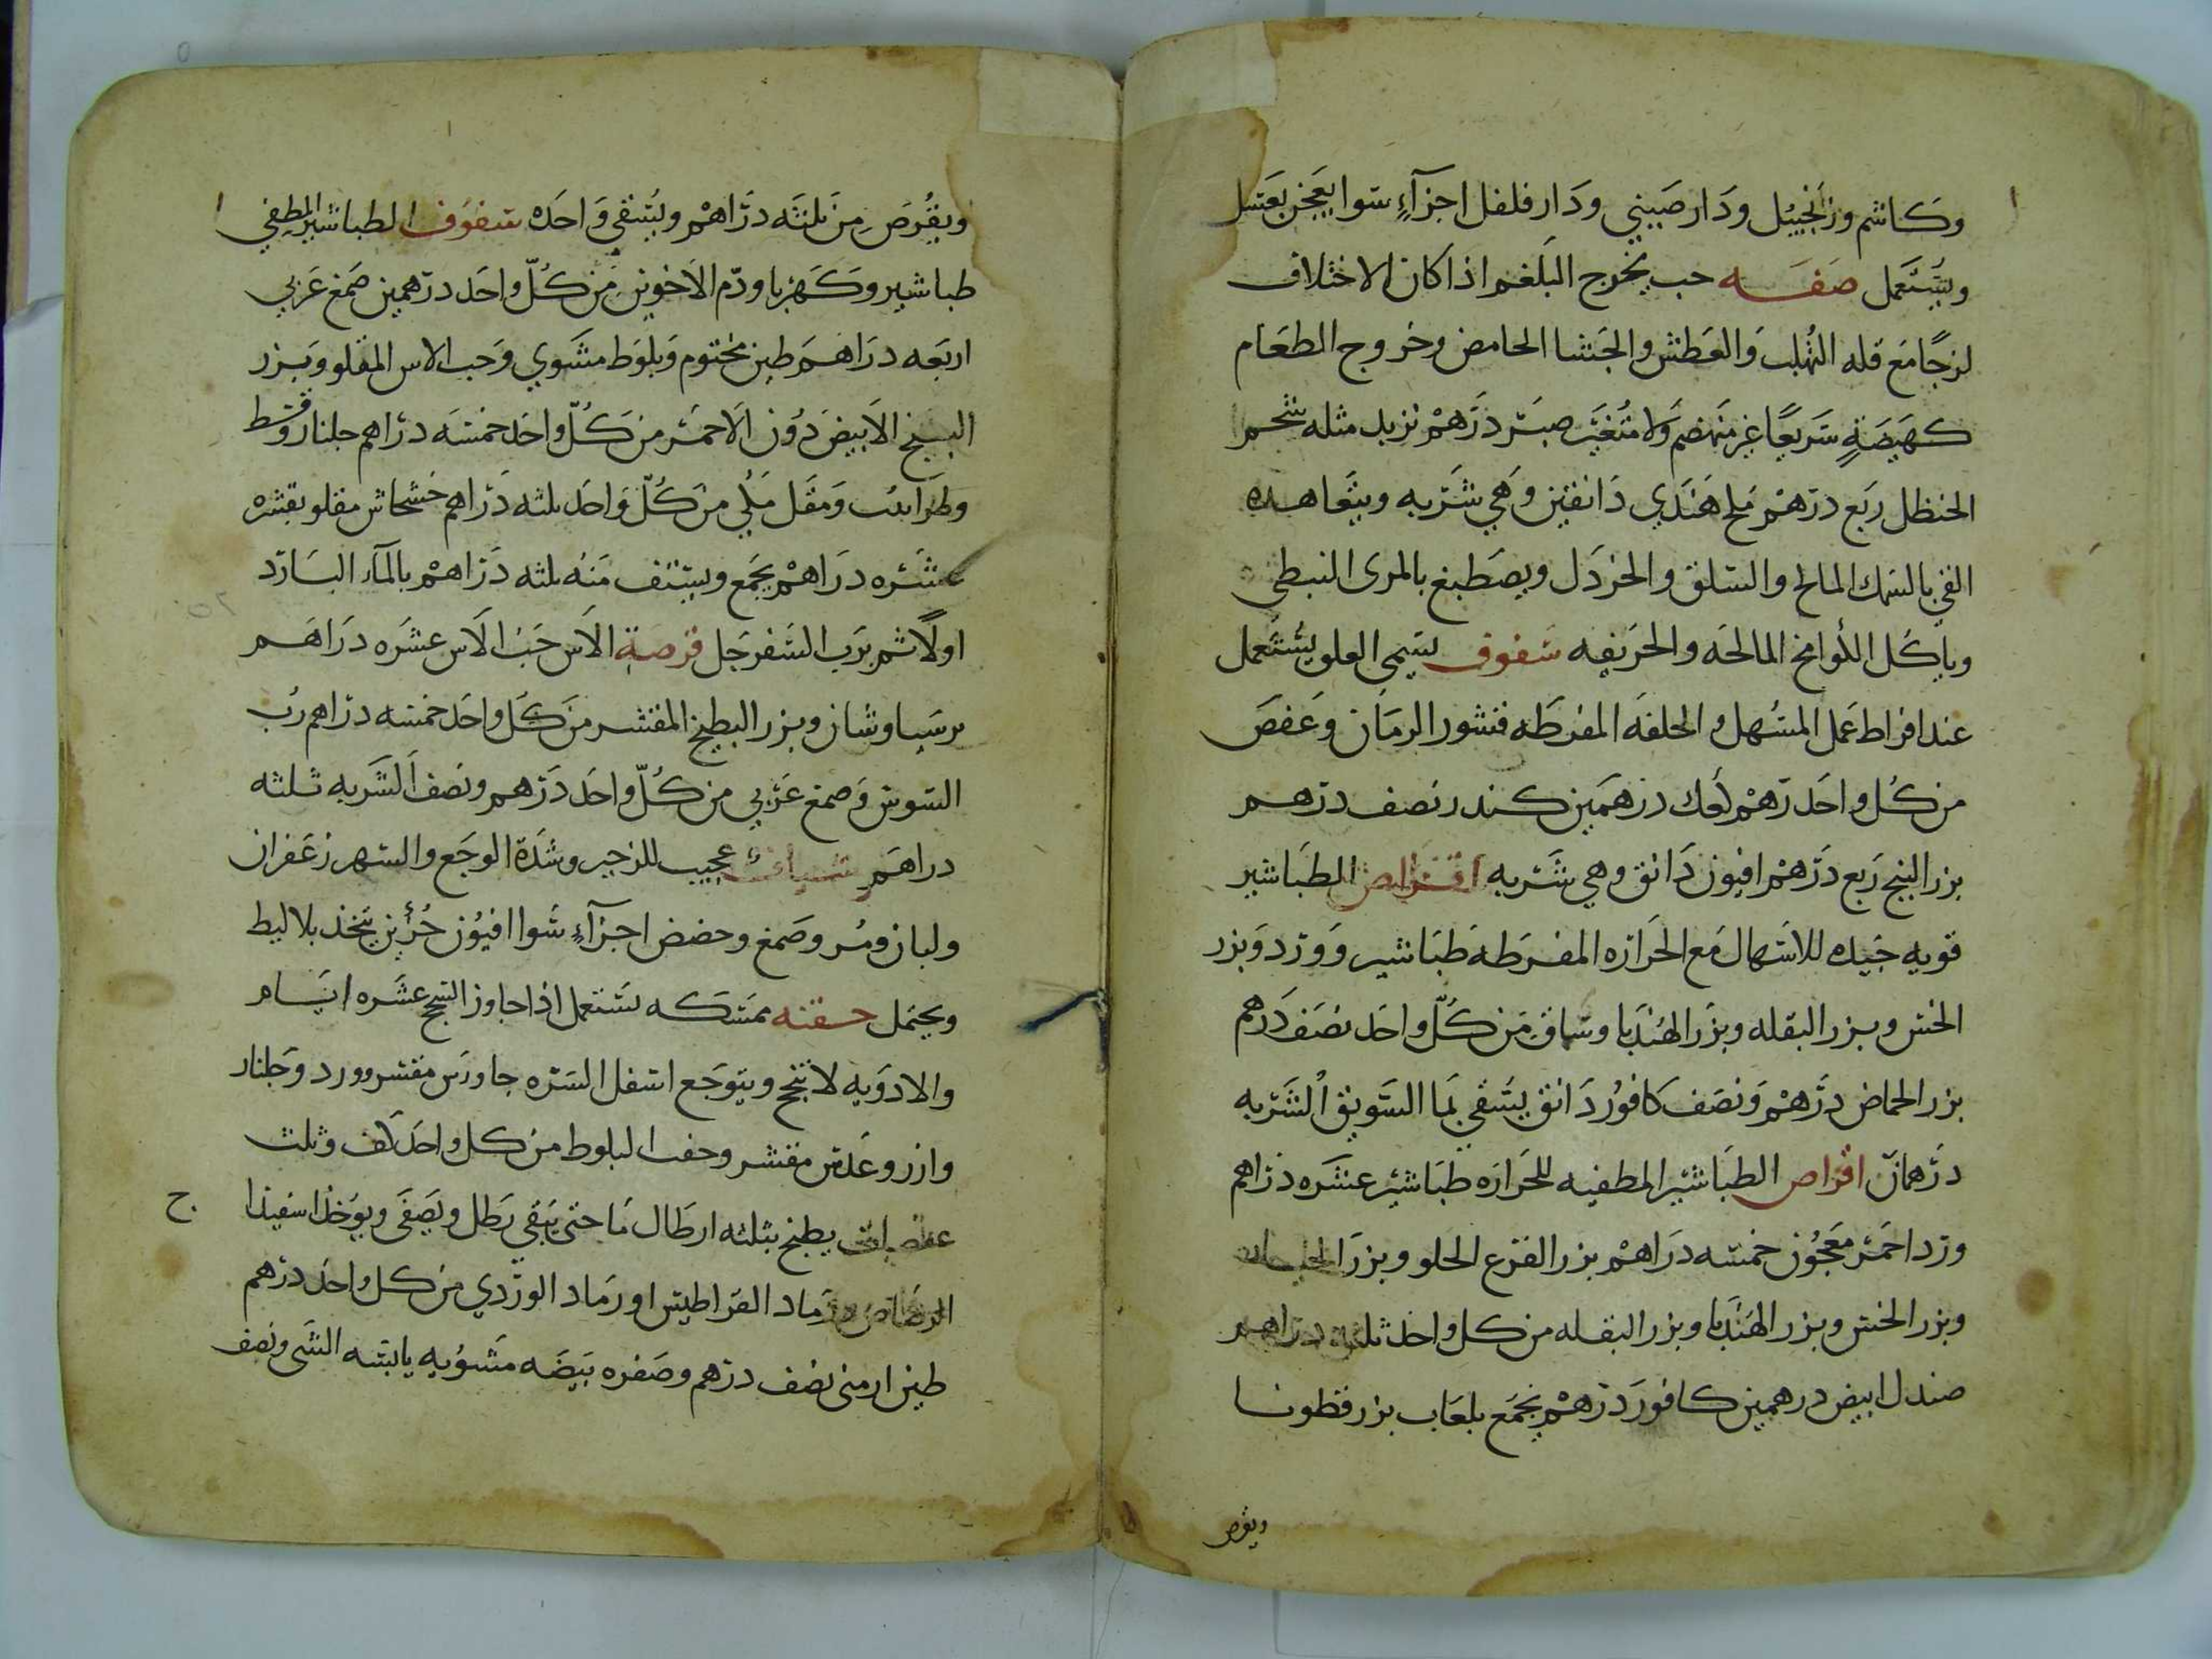 وكاشم وزنجبيل ودار صيني ودار فلفل اجزآء سوا يعجن بعسل
ويستعمل صفه حب يخرج البلغم اذا كان الاختلاف
لزجا مع قله التهلب والعطش والجشا الحامض وخروج الطعام
كهيضة سريعا غير منهضم ولا متغير صبر درهم تربد مثله شحم
الحنظل ربع درهم ملح هندي دانقين وهي شربه ويتعاهده
القي بالسمك المالح والسلق والخردل ويصطبغ بالمرى النبطي
وياكل اللوامخ المالحه والحريفه سفوف يستعمل
عند افراط عمل المسهل والخلفه المفرطه قشور الرمان وعفص
من كل واحد درهم لعك درهمين كندر نصف درهم
بزر البنج ربع درهم افيون دانق وهي شربه اقراص الطباشير
قويه جيده للاسهال مع الحراره المفرطه طباشير وورد وبزر
الخس وبزر البقله وبزر الهندبا وسماق من كل واحد نصف درهم
بزر الحماض درهم ونصف كافور دانق يسقي بما السويق الشربه
درهمان اقراص الطباشير المطفيه للحراره طباشير عشره دراهم
ورد احمر معجون خمسه دراهم بزر القرع الحلو وبزر
وبزر الخس وبزر الهندبا وبزر البقله من كل واحد ثلثه دراهم
صندل ابيض درهمين كافور درهم يجمع بلعاب بزر قطونا
ويقرص
ويقرص من ثلثه دراهم ويسقي واحده سفوف الطباشير المطفي
طباشير وكهربا ودم الاخوين من كل واحد درهمين صمغ عربي
اربعه دراهم طين مختوم وبلوط مشوي وحب الاس المقلو وبزر
البنج الابيض دون الاحمر من كل واحد خمسه دراهم جلنار وقسط
وطراثيث ومقل مكي من كل واحد ثلثه دراهم خشخاش مقلو بقشره
عشره دراهم يجمع ويستف منه ثلثه دراهم بالمآء البارد
اولا ثم برب السفرجل قرصة الاس حب الاس عشره دراهم
برسياوشان وبزر البطيخ المقشر من كل واحد خمسه دراهم رب
السوس وصمغ عربي من كل واحد درهم ونصف الشربه ثلثه
دراهم شياف عجيب للزحير وشدة الوجع والسهر زعفران
ولبان ومر وصمغ وحضض اجزآء سوا افيون جزئين يتخذ بلاليط
ويحتمل حقنه ممسكه تستعمل اذا جاوز السحج عشره ايام
والادويه لا تنجح ويتوجع اسفل السره جاورس مقشر وورد وجلنار
وارز وعدس مقشر وجفت البلوط من كل واحد كف وثلث
عفصات يطبخ بثلثه ارطال ما حتى يبقي رطل ويصفى ويوخذ اسفيذا ج
الرصاص ورماد القراطيس او رماد الوردي من كل واحد درهم
طين ارمني نصف درهم وصفره بيضه مشويه يابسه الشي ونصف